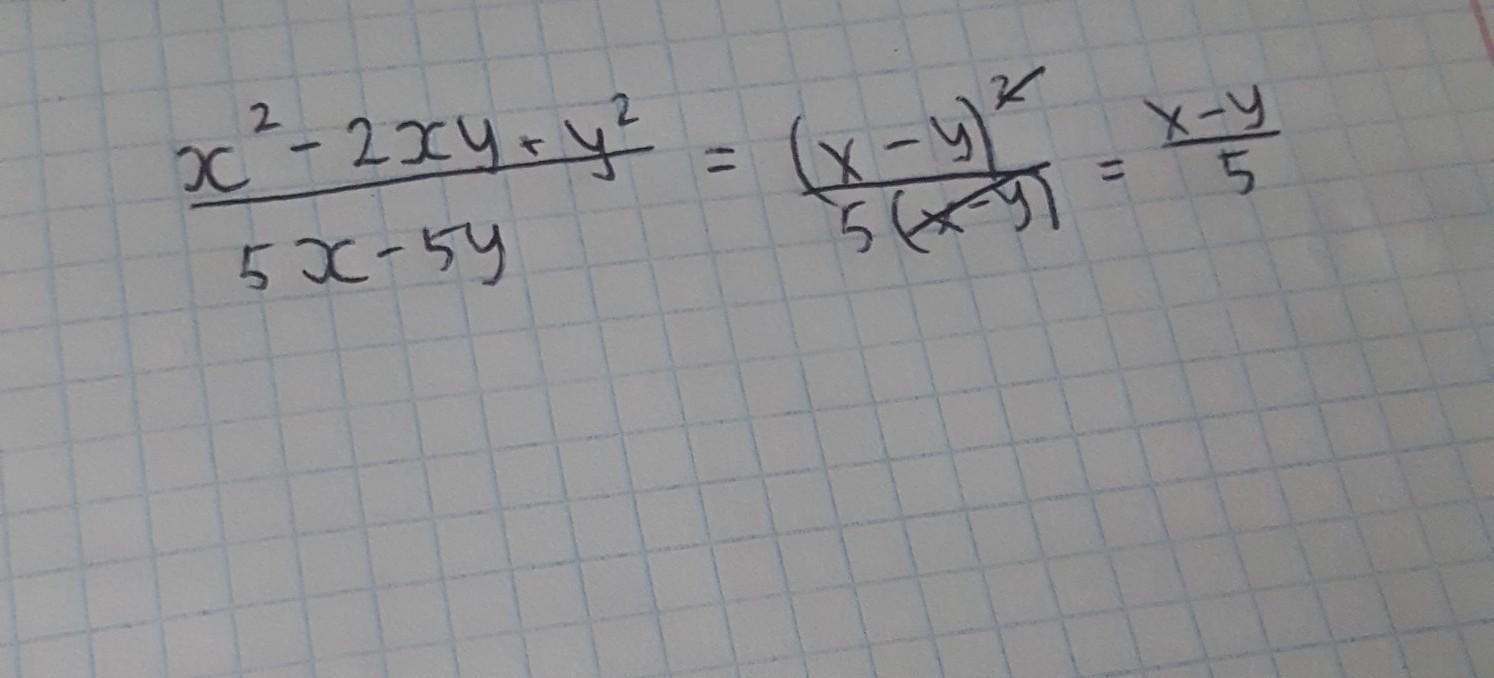 \frac{x^2 - 2xy + y^2}{5x - 5y} = \frac{(x - y)^2}{5(x - y)} = \frac{x - y}{5}